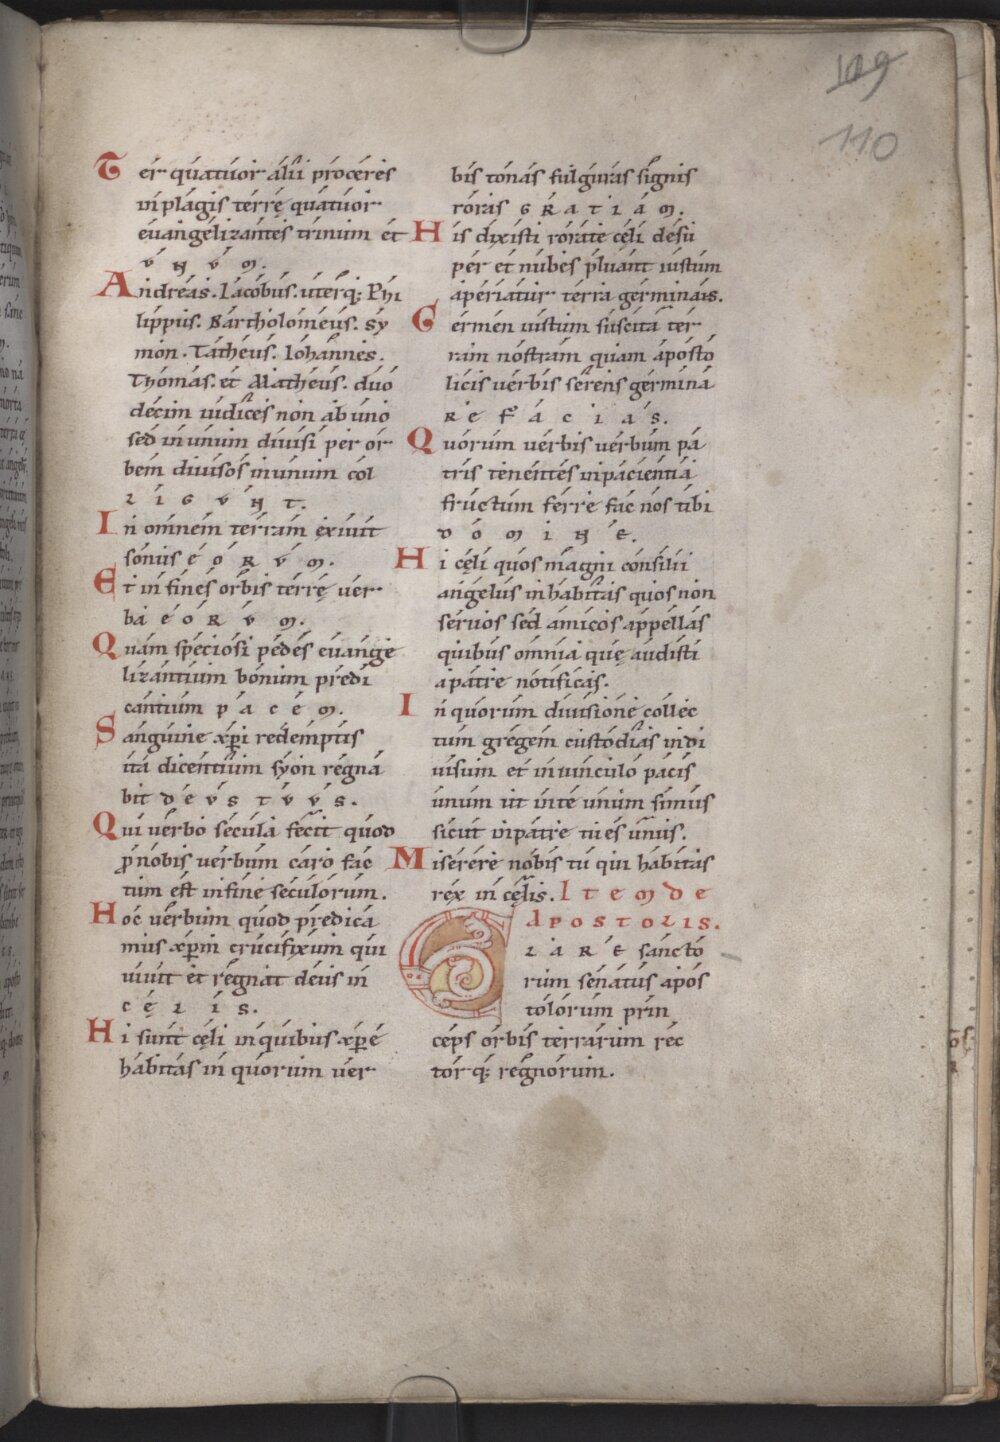 109
110
Ter quatuor alii proceres
in plagis terrę quatuor
euangelizantes trinum et
UNUM.
Andreas. Iacobus. uterq; Phi
lippus. Bartholomeus. Sy
mon. Tatheus. Iohannes.
Thomas. et Matheus. duo
decim iudices non ab uno
sed in unum diuisi per or
bem diuisos in unum col
LIGUNT.
In omnem terram exiuit
sonus EORUM.
Et in fines orbis terrę uer
ba EORUM.
Quam speciosi pedes euange
lizantium bonum predi
cantium PACEM.
Sanguine xp̄i redemptis
ita dicentium syon regna
bit DEUS TUUS.
Qui uerbo secula fecit quod
ꝓ nobis uerbum caro fac
tum est in fine seculorum.
Hoc uerbum quod predica
mus xp̄m crucifixum qui
uiuit et regnat deus in
CĘLIS.
Hi sunt cęli in quibus xp̄e
habitas in quorum uer
bis tonas fulguras signis
roras GRATIAM.
His dixisti rorate cęli desu
per et nubes pluant iustum
aperiatur terra germinans.
Germen iustum suscita ter
ram nostram quam aposto
licis uerbis serens germina
RE FACIAS.
Quorum uerbis uerbum pa
tris tenentes in pacientia
fructum ferre fac nos tibi
DOMINE.
Hi cęli quos magni consilii
angelus inhabitas quos non
seruos sed amicos appellas
quibus omnia quę audisti
a patre notificas.
In quorum diuisione collec
tum gregem custodias indi
uisum et in uinculo pacis
unum ut in te unum simus
sicut in patre tu es unus.
Miserere nobis tu qui habitas
rex in cęlis. Item de
Apostolis.
CLARE sancto
rum senatus apos
tolorum prin
ceps orbis terrarum rec
torq; regnorum.